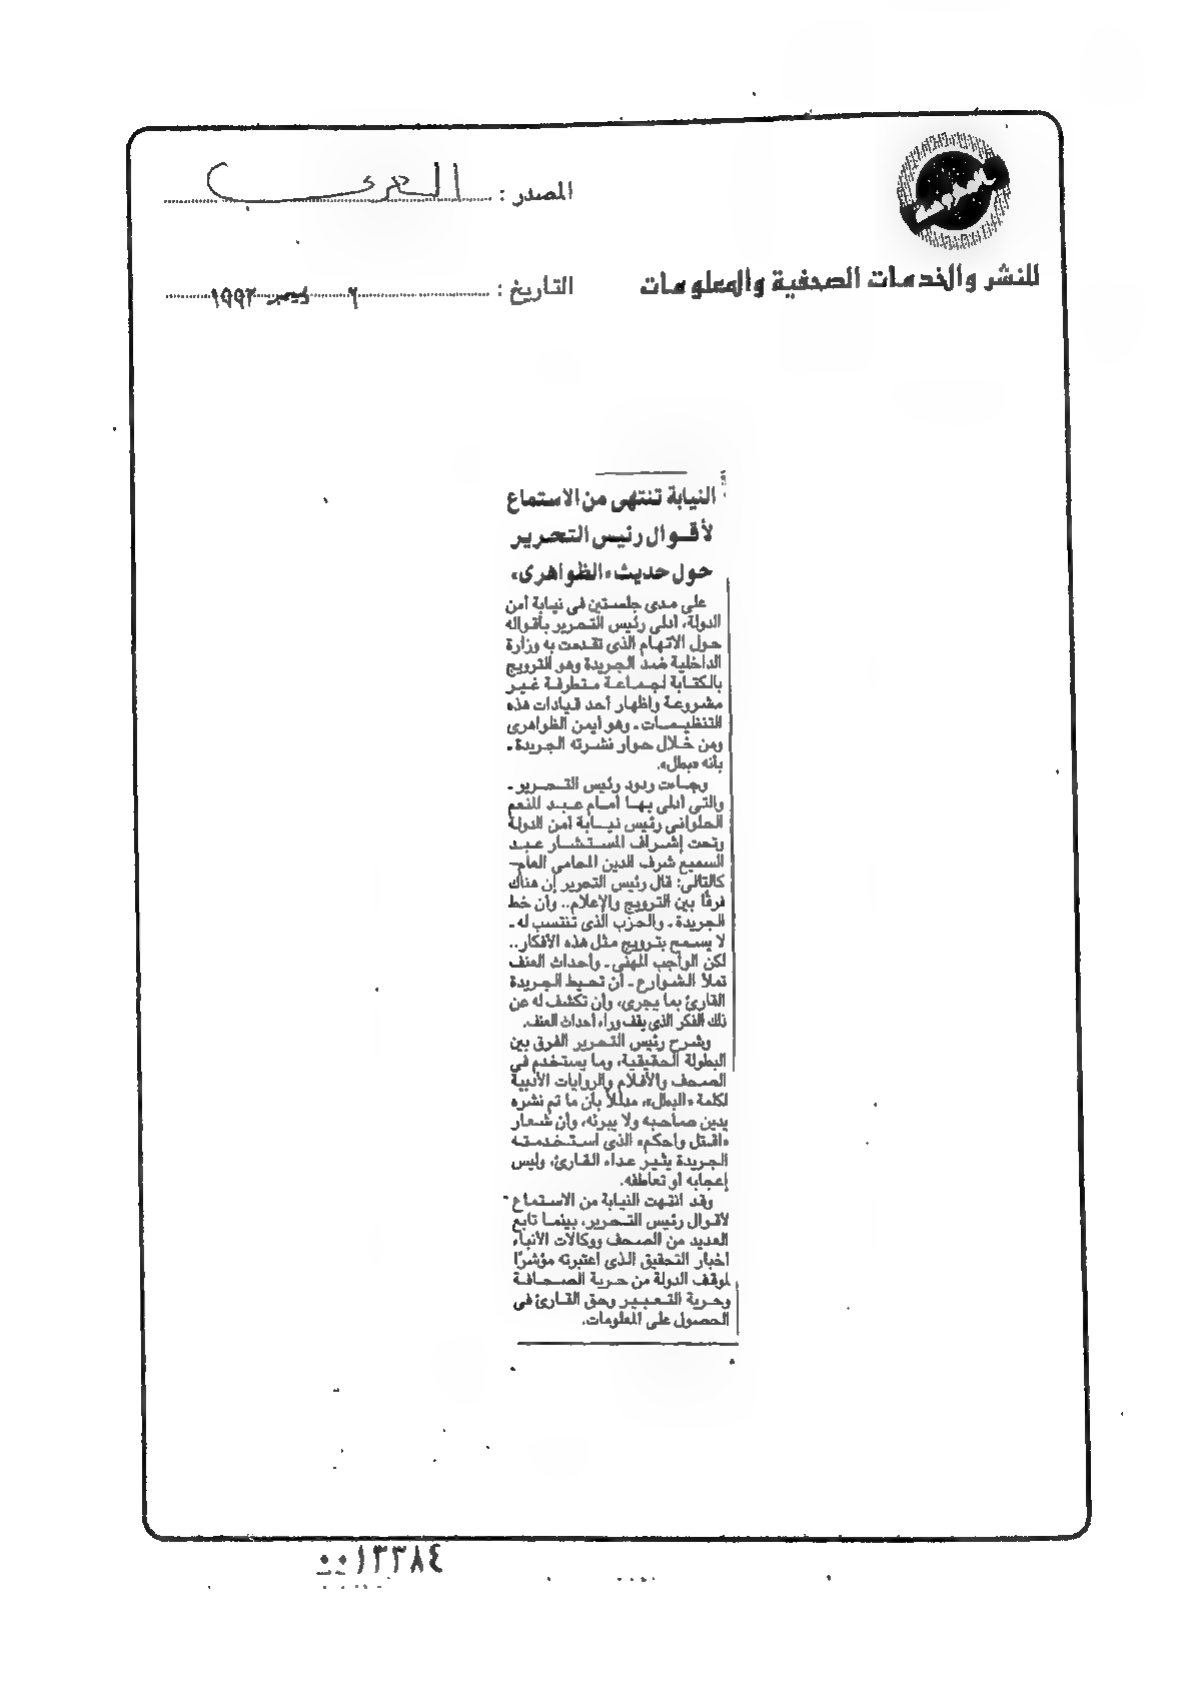 المصدر : العربى
للنشر والخدمات الصحفية والمعلومات
التاريخ : ٦ ديسمبر ١٩٩٣
النيابة تنتهى من الاستماع
لأقوال رئيس التحرير
حول حديث «الظواهرى»
على مدى جلستين فى نيابة أمن
الدولة، أدلى رئيس التحرير بأقواله
حول الاتهام الذى تقدمت به وزارة
الداخلية ضد الجريدة وهو الترويج
بالكتابة لجماعة متطرفة غير
مشروعة وإظهار أحد قيادات هذه
التنظيمات ـ وهو أيمن الظواهرى
ومن خلال حوار نشرته الجريدة ـ
بأنه «بطل».
وجاءت ردود رئيس التحرير ـ
والتى أدلى بها أمام عبد المنعم
الحلوانى رئيس نيابة أمن الدولة
وتحت إشراف المستشار عبد
السميع شرف الدين المحامى العام ـ
كالتالى: قال رئيس التحرير إن هناك
فرقًا بين الترويج والإعلام.. وأن خط
الجريدة ـ والحزب الذى تنتسب له ـ
لا يسمح بترويج مثل هذه الأفكار..
لكن الواجب المهنى ـ وأحداث العنف
تملأ الشوارع ـ أن تحيط الجريدة
القارئ بما يجرى، وأن تكشف له عن
ذلك الفكر الذى يقف وراء أحداث العنف.
وشرح رئيس التحرير الفرق بين
البطولة الحقيقية، وما يستخدم فى
الصحف والأفلام والروايات الأدبية
لكلمة «البطل»، مدللاً بأن ما تم نشره
يدين صاحبه ولا يبرئه، وأن شعار
«اقتل واحكم» الذى استخدمته
الجريدة يثير عداء القارئ، وليس
إعجابه أو تعاطفه.
وقد انتهت النيابة من الاستماع
لأقوال رئيس التحرير، بينما تابع
العديد من الصحف ووكالات الأنباء
أخبار التحقيق الذى اعتبرته مؤشرًا
لموقف الدولة من حرية الصحافة
وحرية التعبير وحق القارئ فى
الحصول على المعلومات.
٠٠١٣٣٨٤